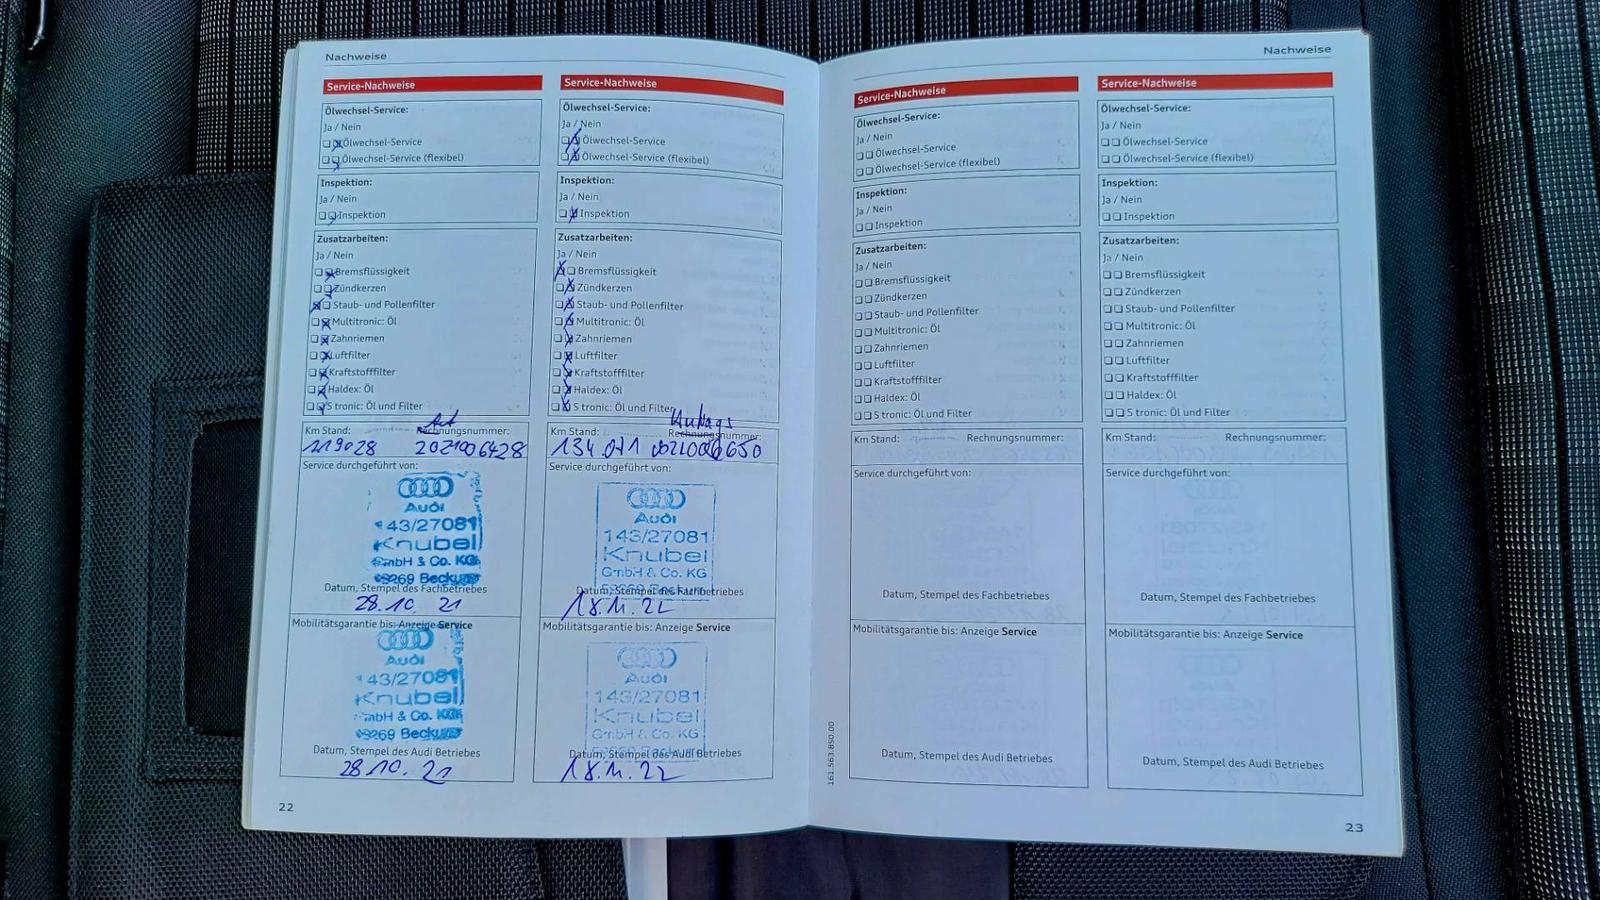 Nachweise
Service-Nachweise
Ölwechsel-Service:
Ja / Nein
Ölwechsel-Service
Ölwechsel-Service (flexibel)
Inspektion:
Ja / Nein
Inspektion
Zusatzarbeiten:
Ja / Nein
Bremsflüssigkeit
Zündkerzen
Staub- und Pollenfilter
Multitronic: Öl
Zahnriemen
Luftfilter
Kraftstofffilter
Haldex: Öl
S tronic: Öl und Filter
Km Stand: Rechnungsnummer:
119028 2021006428
Service durchgeführt von:
Audi
143/27081
Knubel
GmbH & Co. KG
59269 Beckum
Datum, Stempel des Fachbetriebes
28.10. 21
Mobilitätsgarantie bis: Anzeige Service
Audi
143/27081
Knubel
GmbH & Co. KG
59269 Beckum
Datum, Stempel des Audi Betriebes
28.10. 21
22
Service-Nachweise
Ölwechsel-Service:
Ja / Nein
Ölwechsel-Service
Ölwechsel-Service (flexibel)
Inspektion:
Ja / Nein
Inspektion
Zusatzarbeiten:
Ja / Nein
Bremsflüssigkeit
Zündkerzen
Staub- und Pollenfilter
Multitronic: Öl
Zahnriemen
Luftfilter
Kraftstofffilter
Haldex: Öl
S tronic: Öl und Filter
Auftrags
Km Stand: Rechnungsnummer:
134.071
Service durchgeführt von:
Audi
143/27081
Knubel
GmbH & Co. KG
59269 Beckum
Datum, Stempel des Fachbetriebes
18.11.22
Mobilitätsgarantie bis: Anzeige Service
Audi
143/27081
Knubel
GmbH & Co. KG
59269 Beckum
Datum, Stempel des Audi Betriebes
18.11.22
Nachweise
Service-Nachweise
Ölwechsel-Service:
Ja / Nein
Ölwechsel-Service
Ölwechsel-Service (flexibel)
Inspektion:
Ja / Nein
Inspektion
Zusatzarbeiten:
Ja / Nein
Bremsflüssigkeit
Zündkerzen
Staub- und Pollenfilter
Multitronic: Öl
Zahnriemen
Luftfilter
Kraftstofffilter
Haldex: Öl
S tronic: Öl und Filter
Km Stand: Rechnungsnummer:
Service durchgeführt von:
Datum, Stempel des Fachbetriebes
Mobilitätsgarantie bis: Anzeige Service
Datum, Stempel des Audi Betriebes
161.563.850.00
Service-Nachweise
Ölwechsel-Service:
Ja / Nein
Ölwechsel-Service
Ölwechsel-Service (flexibel)
Inspektion:
Ja / Nein
Inspektion
Zusatzarbeiten:
Ja / Nein
Bremsflüssigkeit
Zündkerzen
Staub- und Pollenfilter
Multitronic: Öl
Zahnriemen
Luftfilter
Kraftstofffilter
Haldex: Öl
S tronic: Öl und Filter
Km Stand: Rechnungsnummer:
Service durchgeführt von:
Datum, Stempel des Fachbetriebes
Mobilitätsgarantie bis: Anzeige Service
Datum, Stempel des Audi Betriebes
23